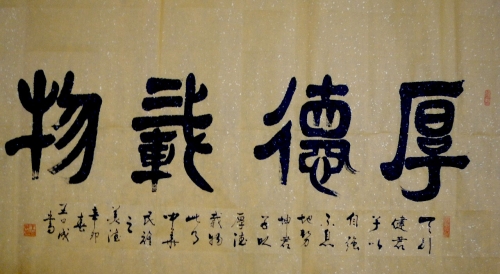 厚德載物
天行
健君
子以
自強
不息
地勢
坤君
子以
厚德
載物
此乃
中華
民族
之
美德
辛卯
春
書